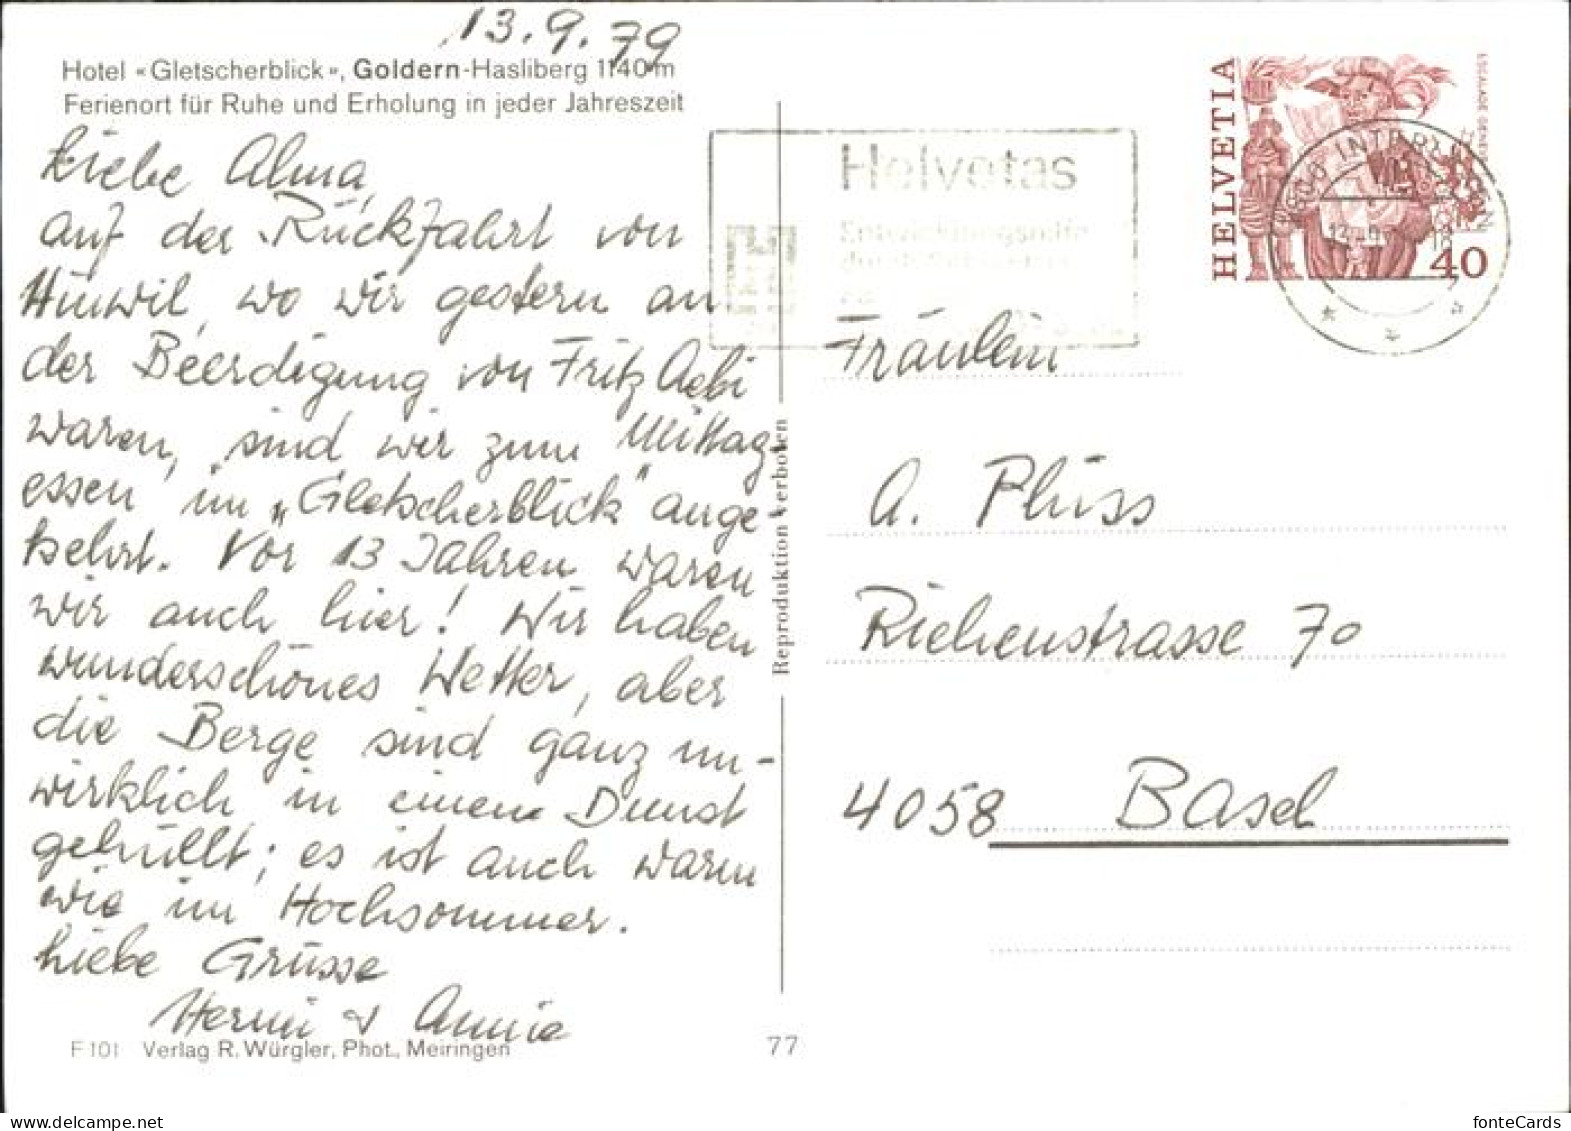 13.9.79
Hotel «Gletscherblick», Goldern-Hasliberg 1140 m
Ferienort für Ruhe und Erholung in jeder Jahreszeit
Liebe Alma,
auf der Rückfahrt von
Hinwil, wo wir gestern an
der Beerdigung von Fritz Aebi
waren, sind wir zum Mittag-
essen im "Gletscherblick" ange-
kehrt. Vor 13 Jahren waren
wir auch hier! Wir haben
wunderschönes Wetter, aber
die Berge sind ganz un-
wirklich in einem Dunst
gehüllt; es ist auch warm
wie im Hochsommer.
Liebe Grüsse
Hermi & Annie
F 101 Verlag R. Würgler, Phot., Meiringen
Reproduktion verboten
77
Helvetas
HELVETIA
ESCALADE GENEVE
40
3800 INTERLAKEN
Fräulein
A. Plüss
Riehenstrasse 70
4058 Basel
fonteCards